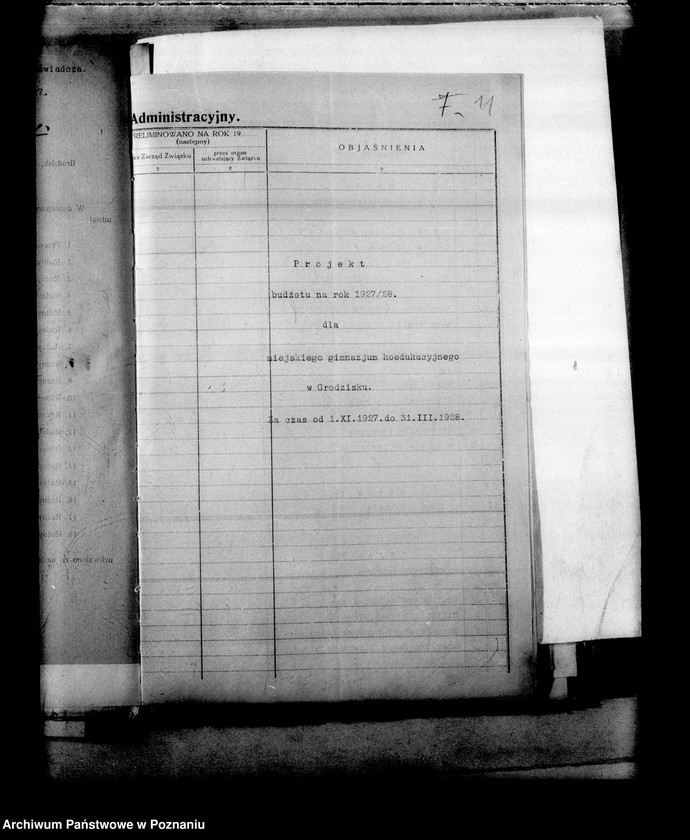 świadcza.
F. 11
Administracyjny.
RELIMINOWANO NA ROK 19
(następny)
ez Zarząd Związku
przez organ
uchwalający Związku
OBJAŚNIENIA
7 8 9
Projekt
budżetu na rok 1927/28.
dla
miejskiego gimnazjum koedukacyjnego
w Grodzisku.
Za czas od 1.XI.1927.do 31.III.1928.
Archiwum Państwowe w Poznaniu